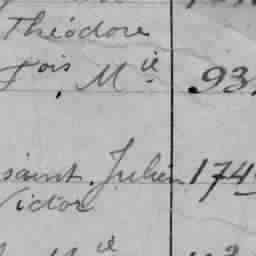 Théodore
Fois, Mie 93
saint Julien 174
Victor